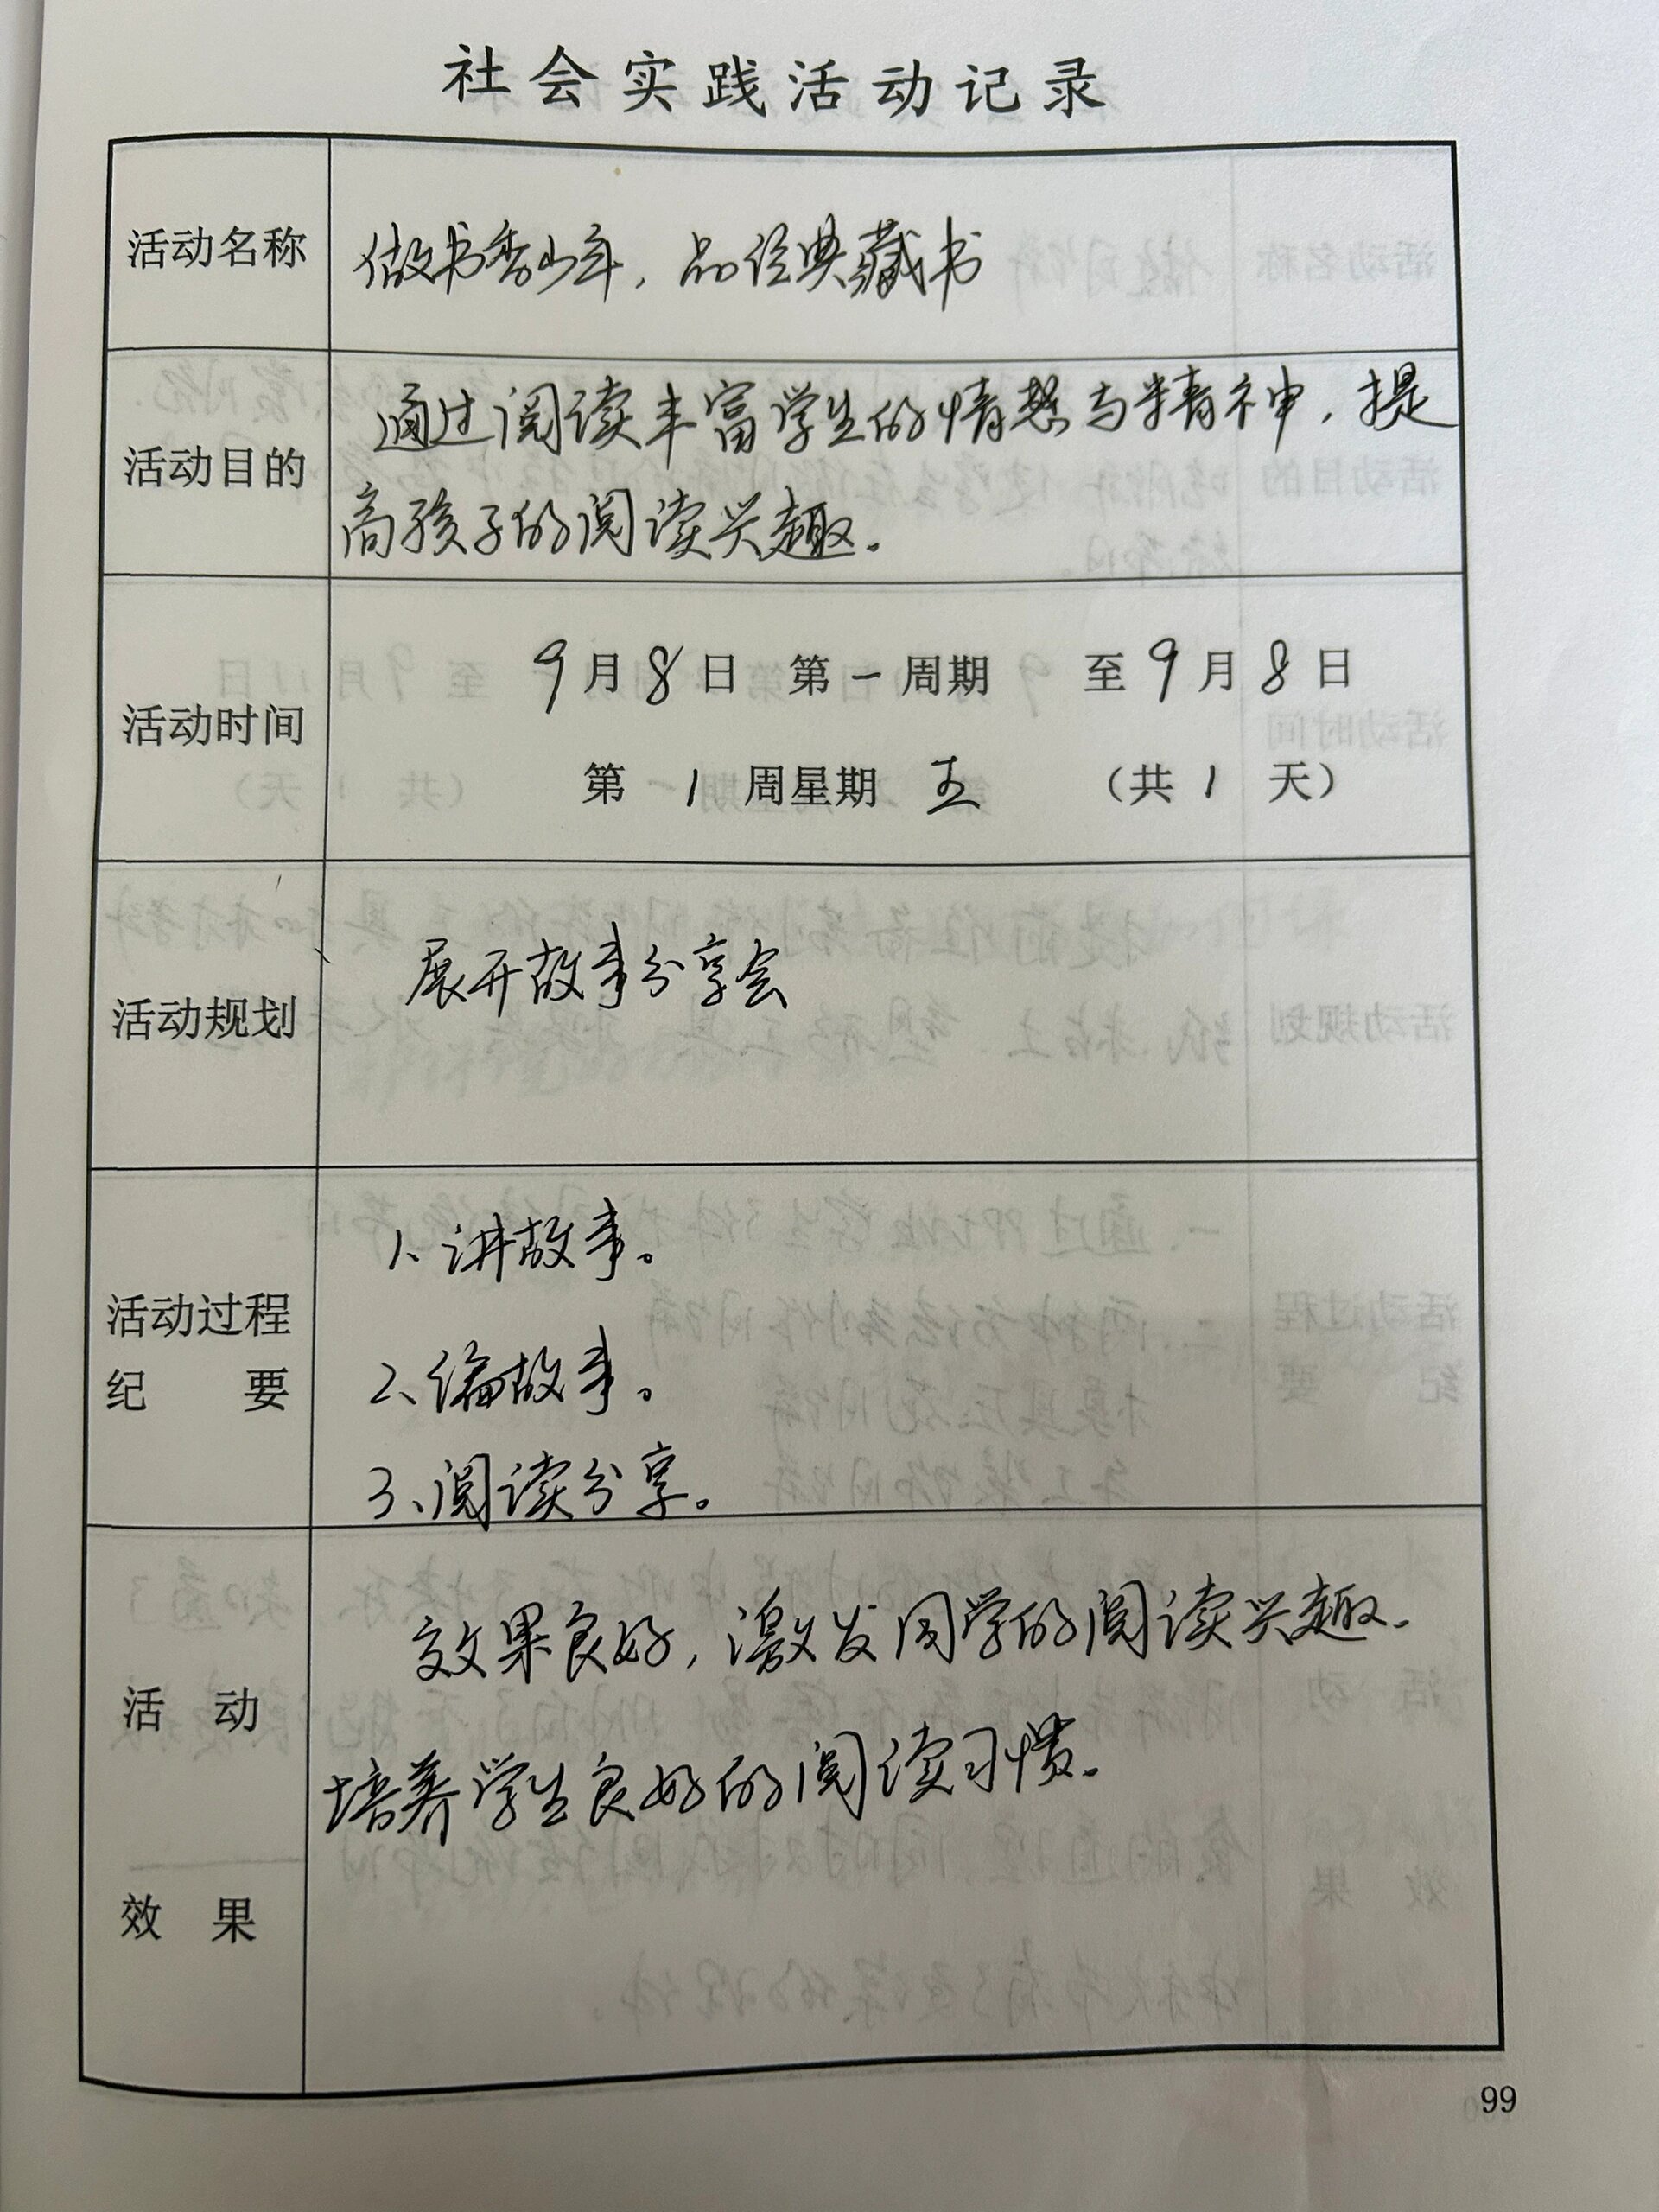 社会实践活动记录
活动名称
做书香少年，品经典藏书
活动目的
通过阅读丰富学生的情愁与精神，提
高孩子的阅读兴趣。
活动时间
9月8日 第一周期 至9月8日
第1周星期五 （共1天）
活动规划
展开故事分享会
活动过程
纪要
1、讲故事。
2、编故事。
3、阅读分享。
活动
效果
效果良好，激发同学的阅读兴趣.
培养学生良好的阅读习惯.
99